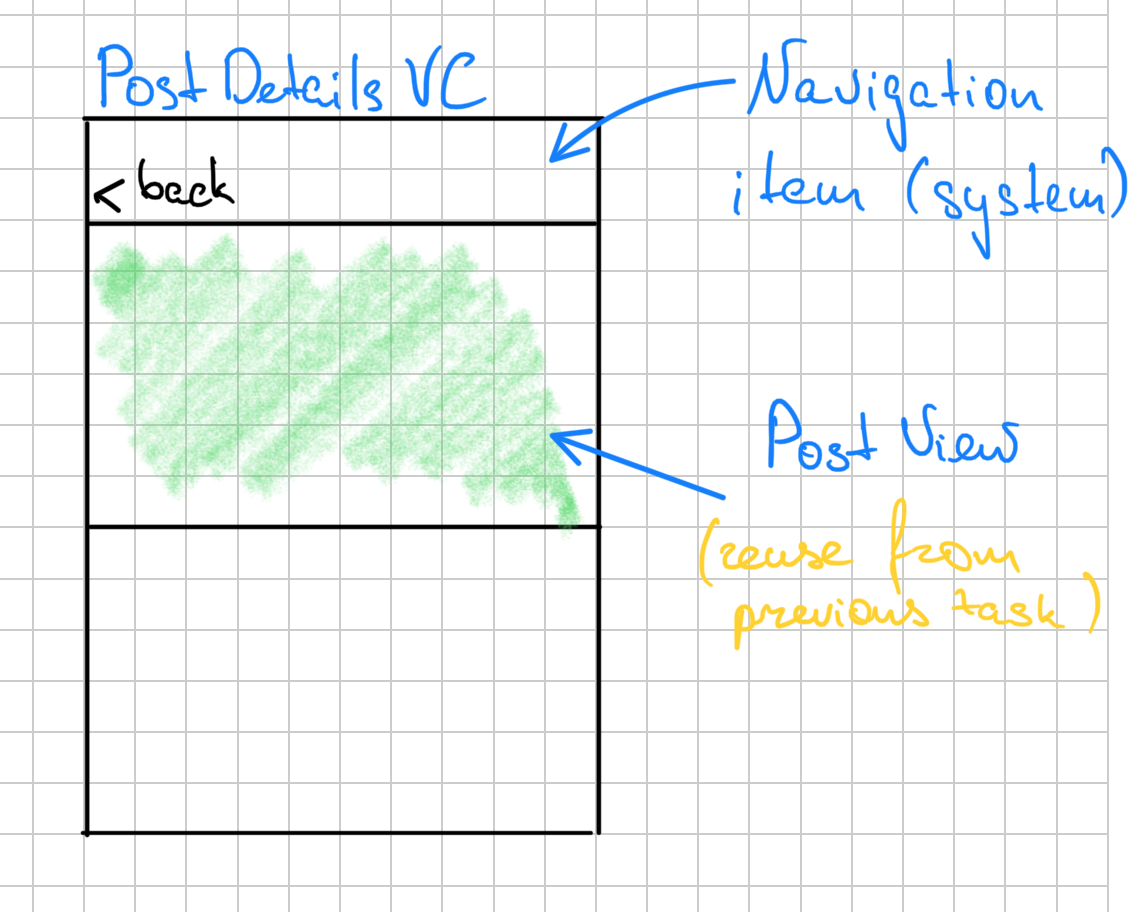 Post Details VC
Navigation
item (system)
< back
Post View
(reuse from
previous task)